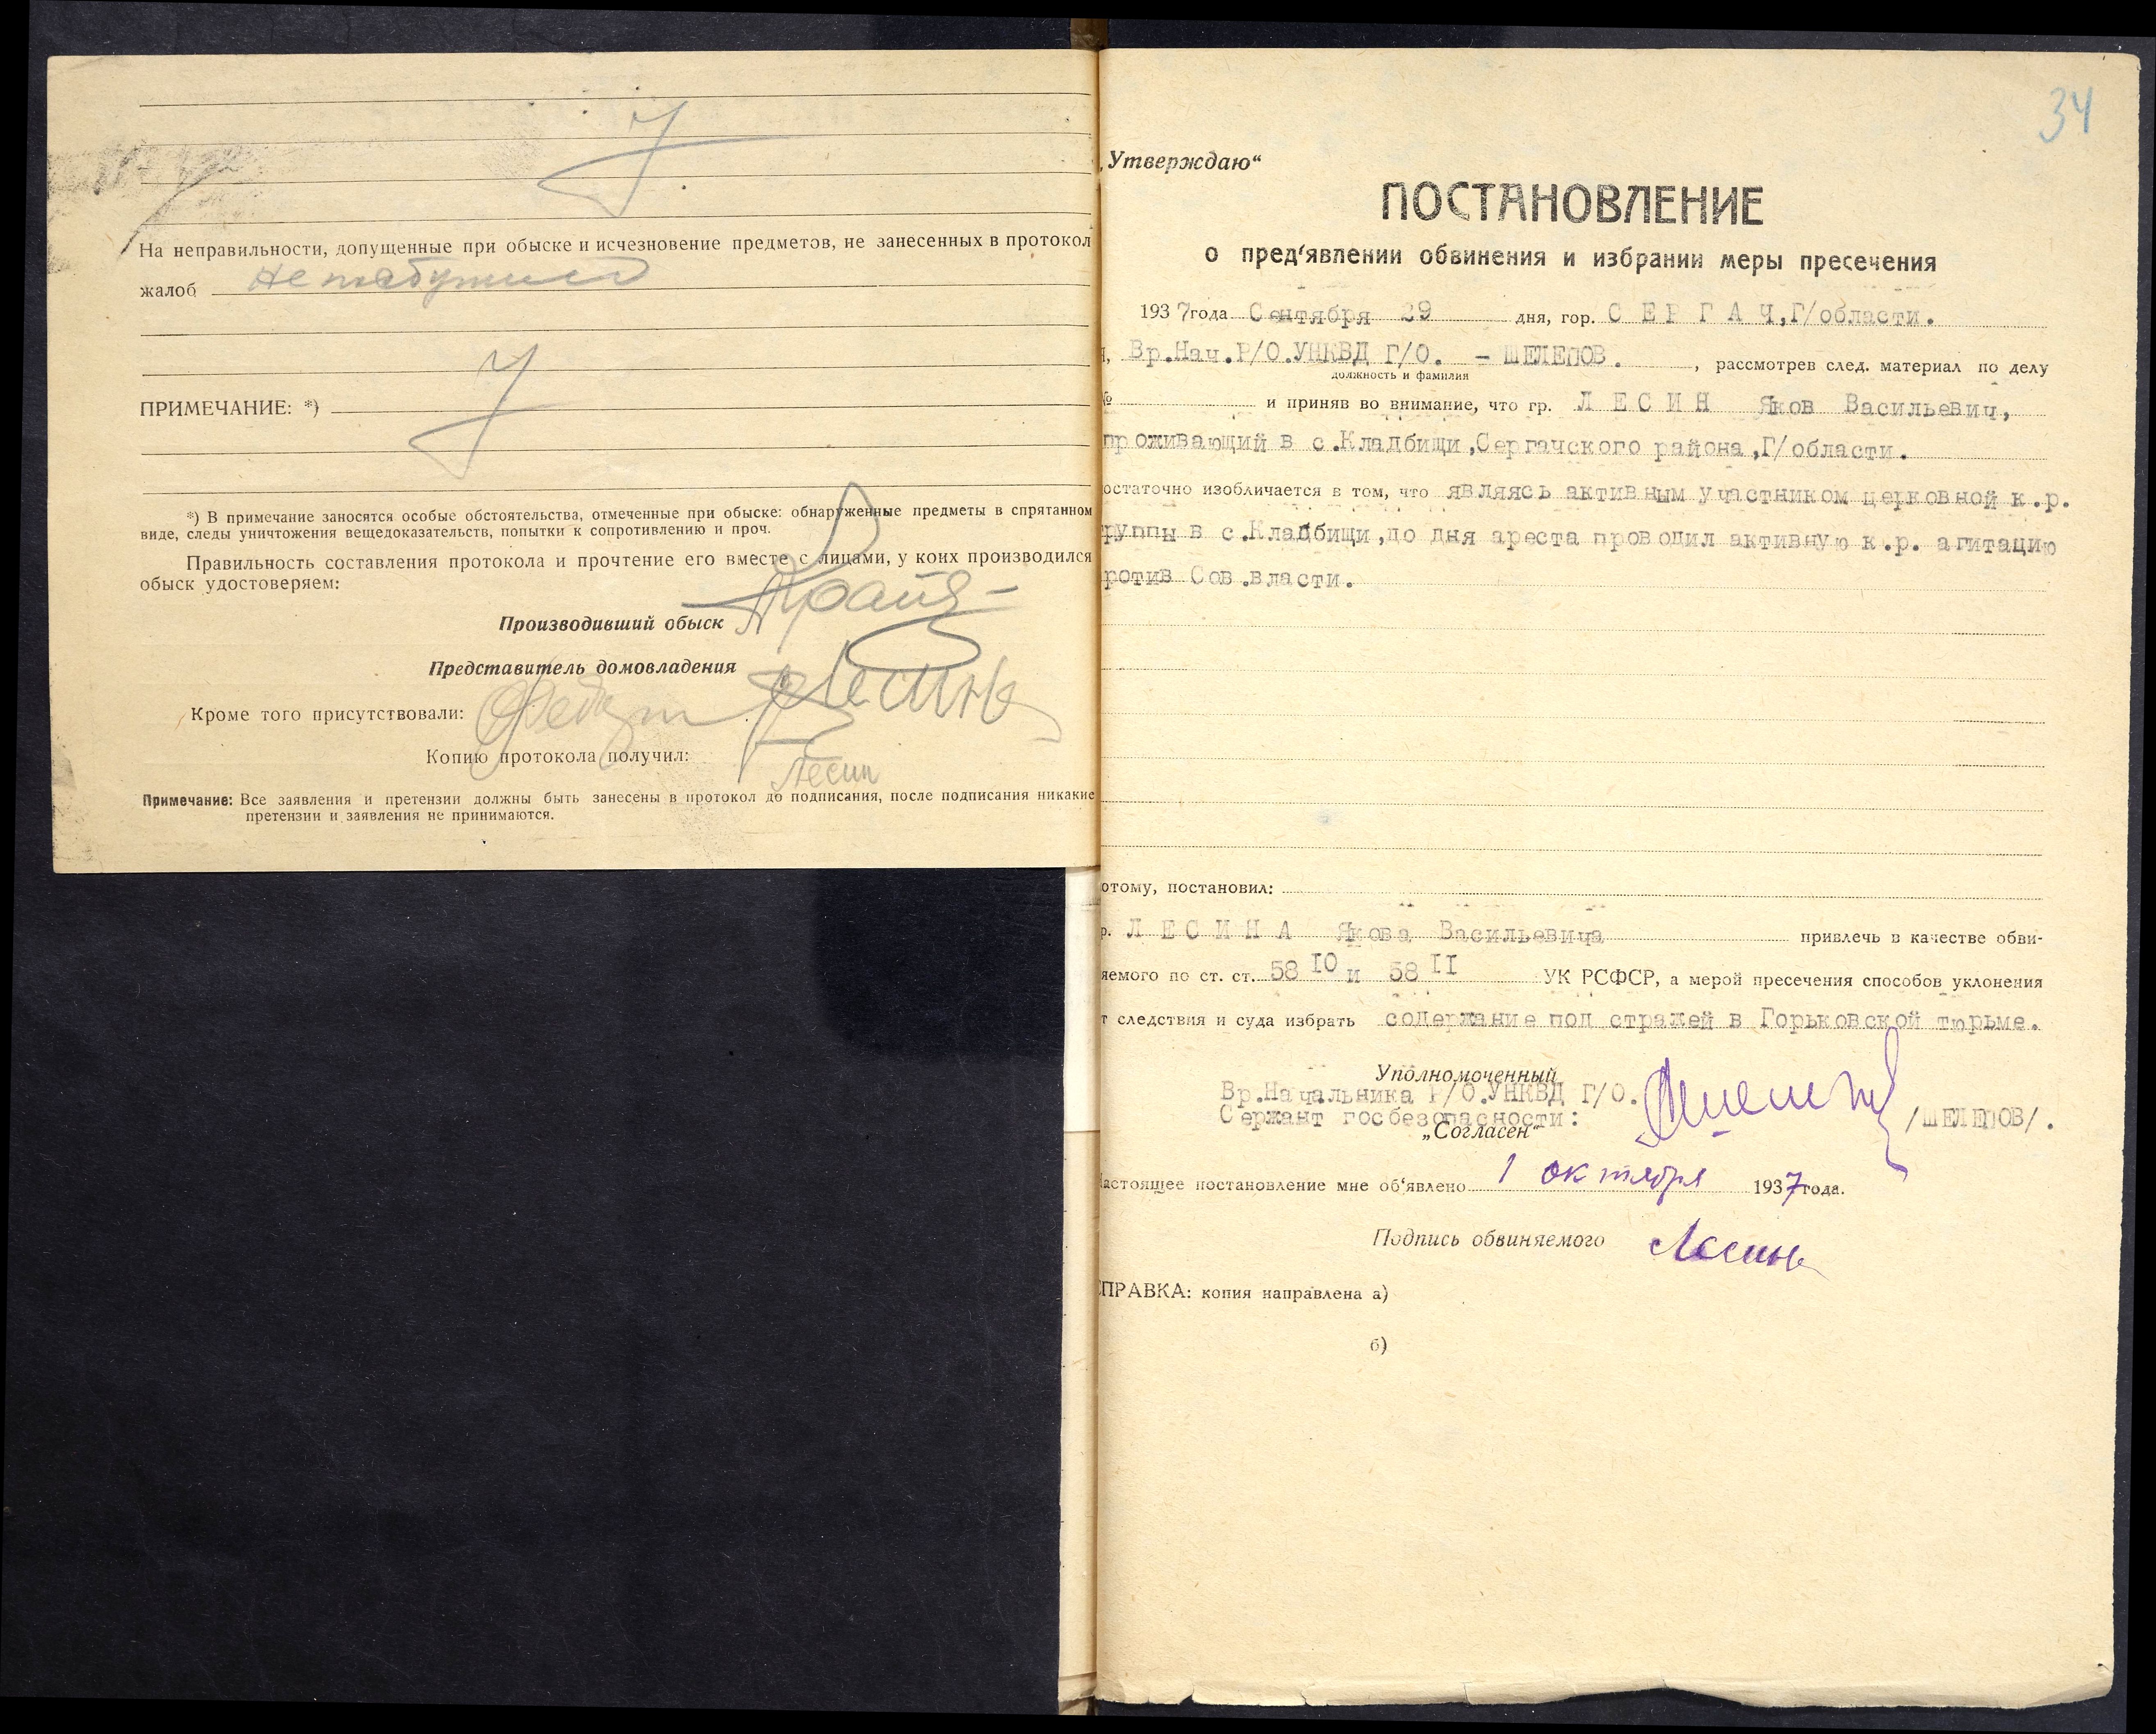 На неправильности, допущенные при обыске и исчезновение предметов, не занесенных в протокол
жалоб
ПРИМЕЧАНИЕ: *)
*) В примечание заносятся особые обстоятельства, отмеченные при обыске: обнаруженные предметы в спрятанном
виде, следы уничтожения вещедоказательств, попытки к сопротивлению и проч.
Правильность составления протокола и прочтение его вместе с лицами, у коих производился
обыск удостоверяем:
Производивший обыск
Представитель домовладения Лесин
Кроме того присутствовали:
Копию протокола получил:
Лесин
Примечание: Все заявления и претензии должны быть занесены в протокол до подписания, после подписания никакие
претензии и заявления не принимаются.
34
„Утверждаю“
ПОСТАНОВЛЕНИЕ
о пред‘явлении обвинения и избрании меры пресечения
1937 года Сентября 29 дня, гор. С Е Р Г А Ч, Г/области.
Вр.Нач.Р/О.УНКВД Г/О. – ШЕЛЕПОВ. , рассмотрев след. материал по делу
должность и фамилия
№ и приняв во внимание, что гр. Л Е С И Н Яков Васильевич,
проживающий в с.Кладбищи,Сергачского района,Г/области.
остаточно изобличается в том, что являясь активным участником церковной к.р.
руппы в с.Кладбищи,до дня ареста проводил активную к.р. агитацию
ротив Сов.власти.
отому, постановил:
р. Л Е С И Н А Якова Васильевича привлечь в качестве обви-
яемого по ст. ст. 58 IO и 58 II УК РСФСР, а мерой пресечения способов уклонения
т следствия и суда избрать содержание под стражей в Горьковской тюрьме.
Уполномоченный
Вр.Начальника Р/О.УНКВД Г/О.
Сержант госбезопасности: /ШЕЛЕПОВ/.
„Согласен“
астоящее постановление мне об‘явлено 1 октября 1937 года.
Подпись обвиняемого Лесин
СПРАВКА: копия направлена а)
б)